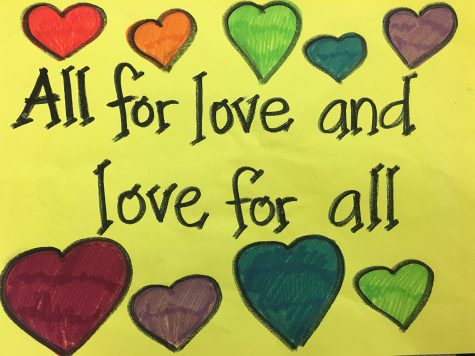 All for love and
love for all